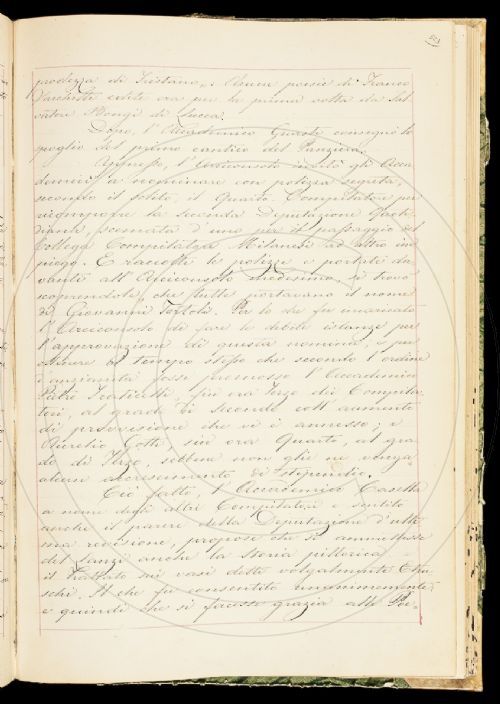 prodezza di Tristano". Alcune poesie di Franco
Sacchetti edite ora per la prima volta da Sal-
vatore Bongi di Lucca.
Dopo, l'Accademico Guasti consegnò lo
spoglio del primo cantico del Panziera.
Appresso, l'Arciconsolo invitò gli Acca-
demici a nominare con polizia segreta,
secondo il solito, il Quarto Compilatore per
ricomporre la seconda Deputazione quoti-
diana, scemata d'uno per il passaggio del
Collega Compilatore Milanesi ad altro im-
piego. E raccolte le polizie e portate da-
vanti all'Arciconsolo medesimo, si trovò
scoprendole, che tutte portavano il nome
di Giovanni Tortoli. Per lo che fu incaricato
l'Arciconsolo di fare le debite istanze per
l'approvazione di questa nomina, e per
ottenere al tempo stesso che secondo l'ordine
d'anzianità fosse promosso l'Accademico
Pietro Fraticelli, fin ora Terzo dei Compila-
tori, al grado di Secondo coll'aumento
di provvisione che vi è annesso; e
Aurelio Gotti, sin ora Quarto, al gra-
do di Terzo, sebbene non glie ne venga
alcun accrescimento di stipendio.
Ciò fatto, l'Accademico Casella
a nome degli altri Compilatori e sentito
anche il parere della Deputazione d'ulti-
ma revisione, propose che si ammettesse
del Lanzi anche la Storia pittorica e
il trattato sui vasi detti volgarmente Etru-
schi. Il che fu consentito unanimemente
e quindi che si facesse grazia alle Poe-